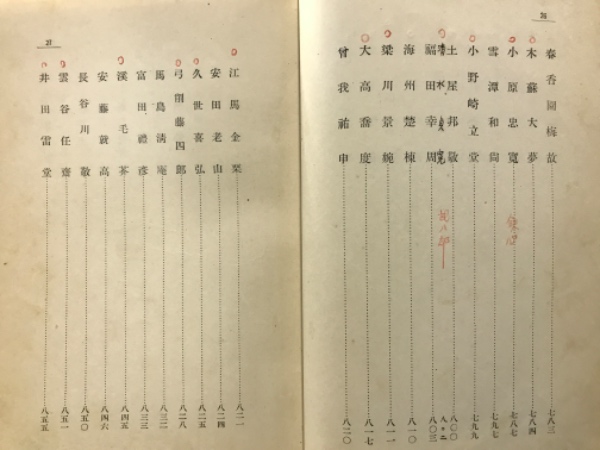 26
春香園梅敬 七八三
木蘇大夢 七八四
小原忠寛 七八七
雪潭和尚 七九七
小野崎立堂 七九九
土屋邦敬 八〇〇
八〇二
福田幸周 八〇三
海州楚棟 八一〇
梁川景婉 八一一
大高喬度 八一七
曾我祐申 八二〇
27
江馬金粟 八二一
安田老山 八二四
久世喜弘 八二五
弓削藤四郎 八二八
馬島淸庵 八三二
富田禮彥 八三三
溪毛芥 八四五
安藤就高 八四六
長谷川敬 八五〇
雲谷任齋 八五一
井田雷堂 八五五